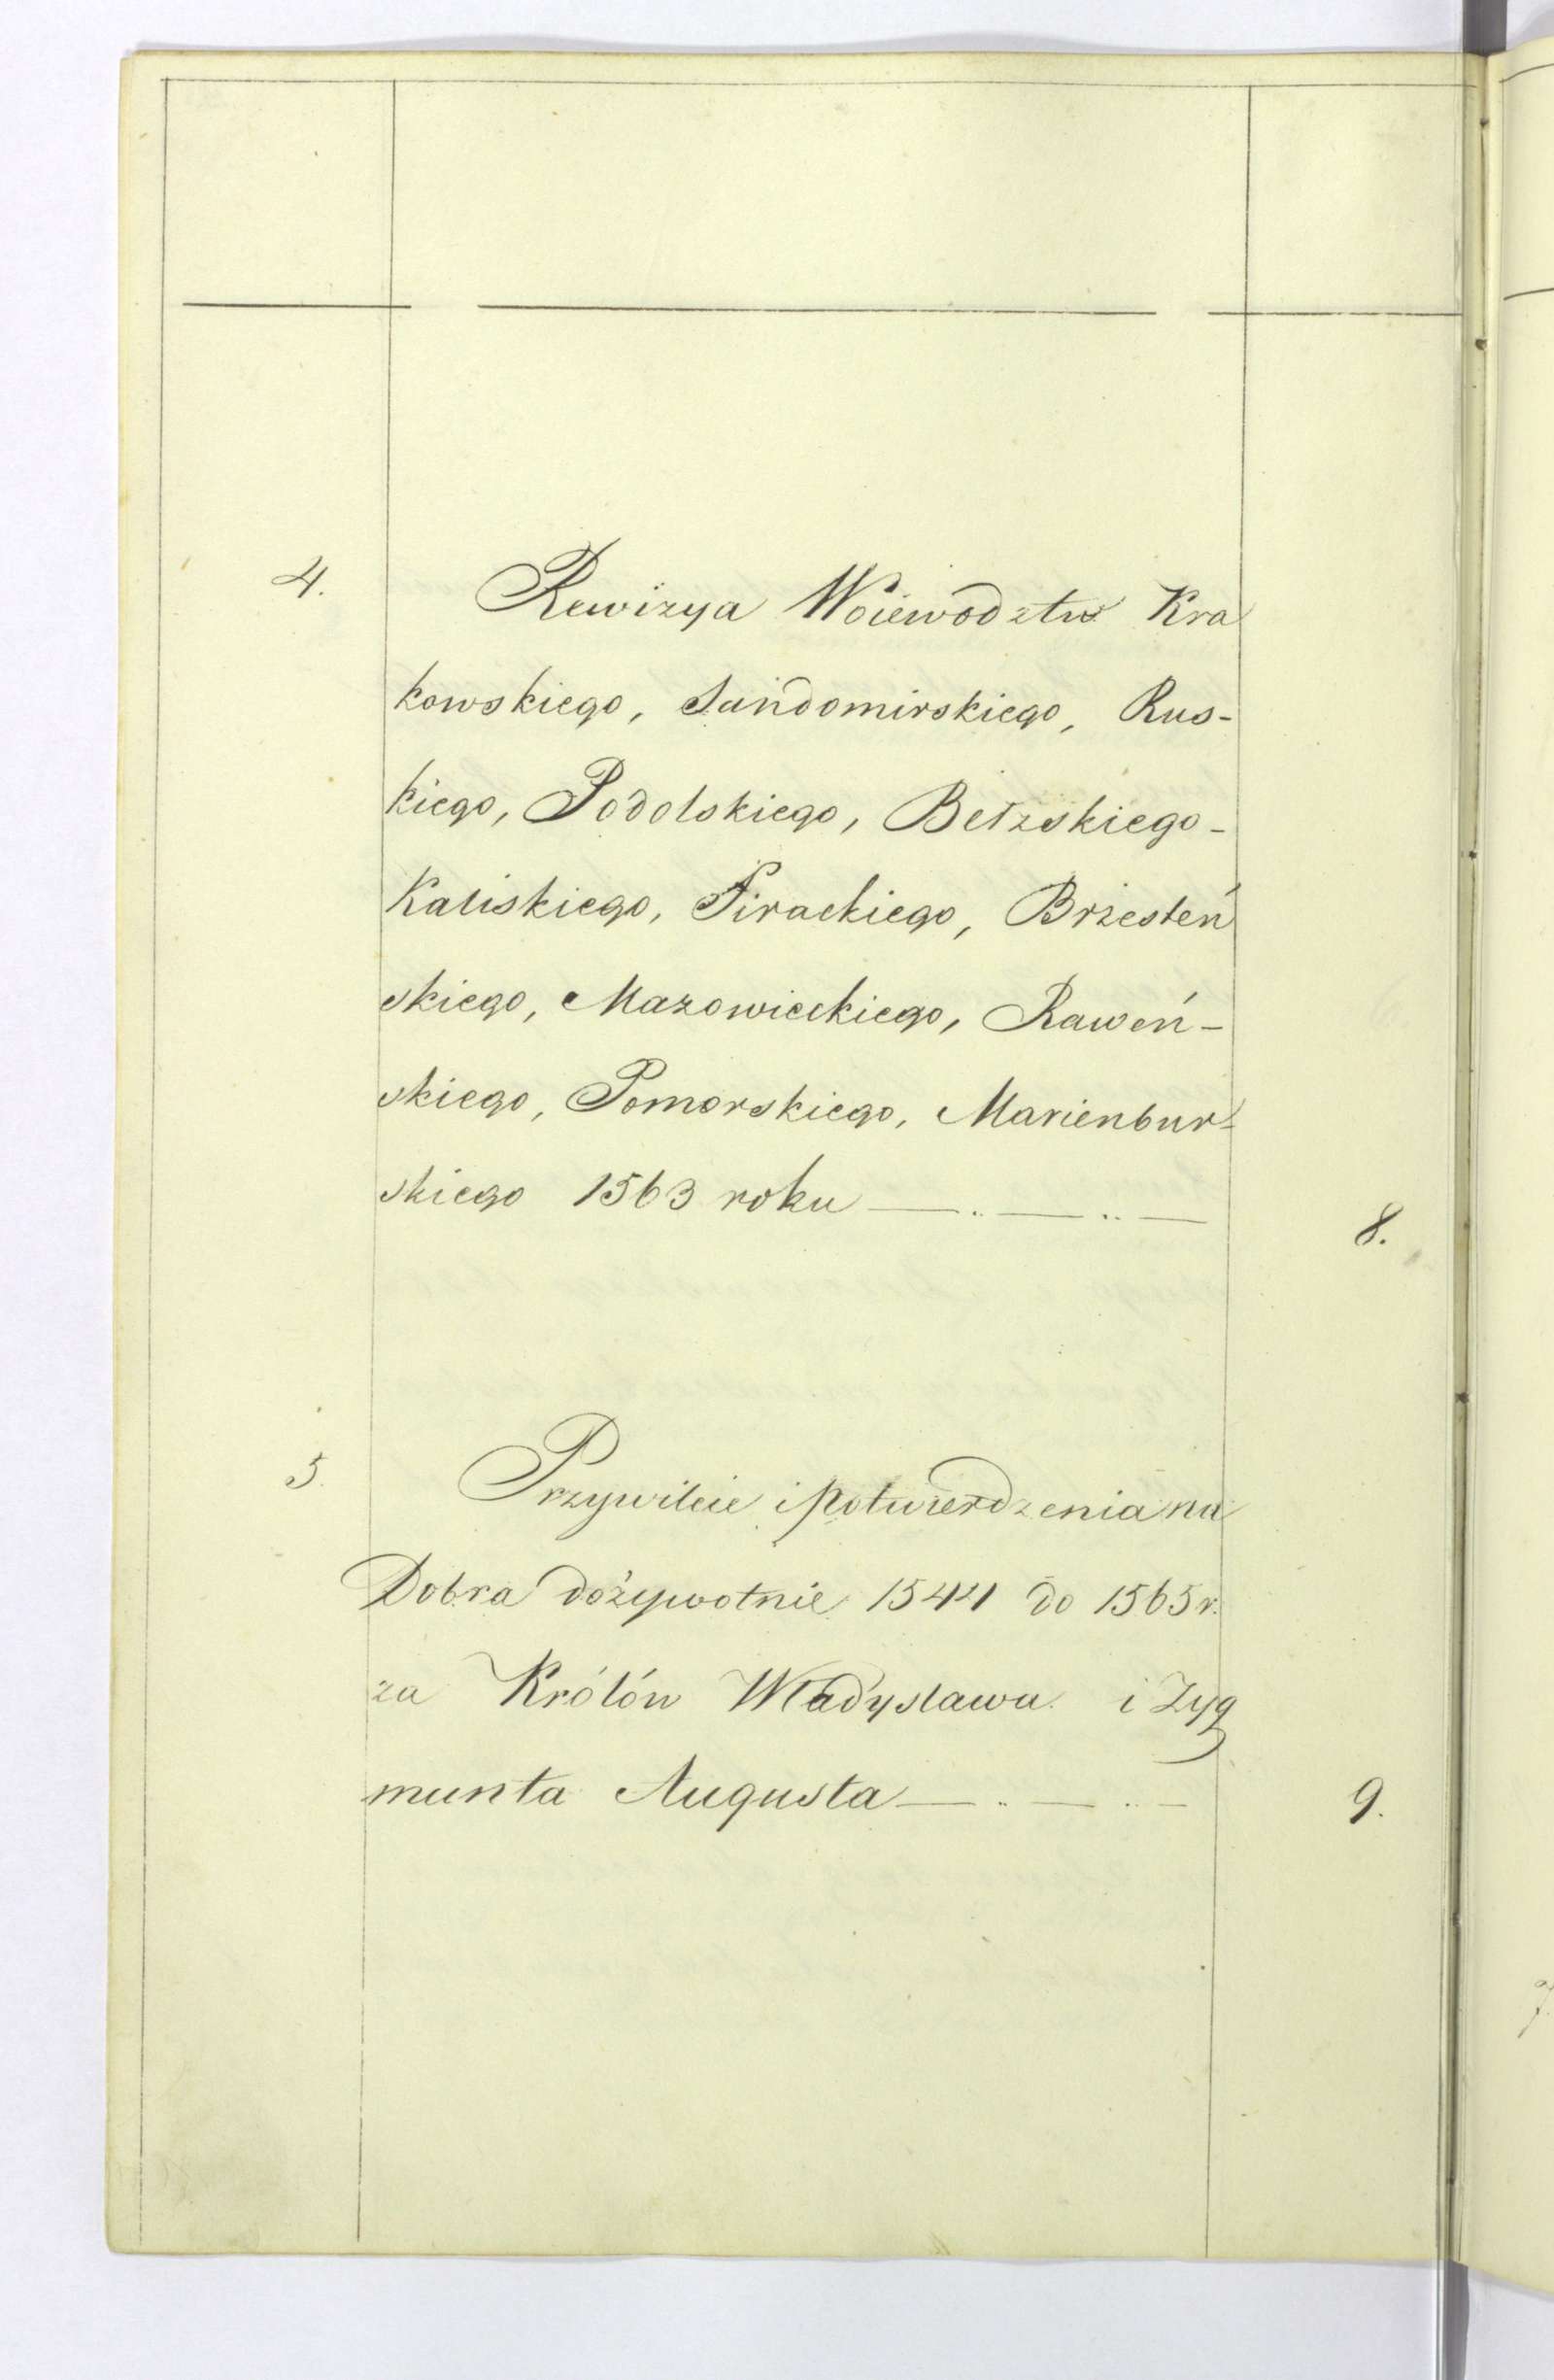 4. Rewizya Woiewodztw Kra
kowskiego, Sandomirskiego, Rus-
kiego, Podolskiego, Bełzskiego-
Kaliskiego, Sirackiego, Brzesteń
skiego, Mazowieckiego, Raweń-
skiego, Pomorskiego, Marienbur-
skiego 1563 roku — .. — .. — 8.
5. Przywileie i potwierdzenia na
Dobra dożywotnie 1544 do 1565 r.
za Królów Władysława i Zyg
munta Augusta — .. — .. — 9.